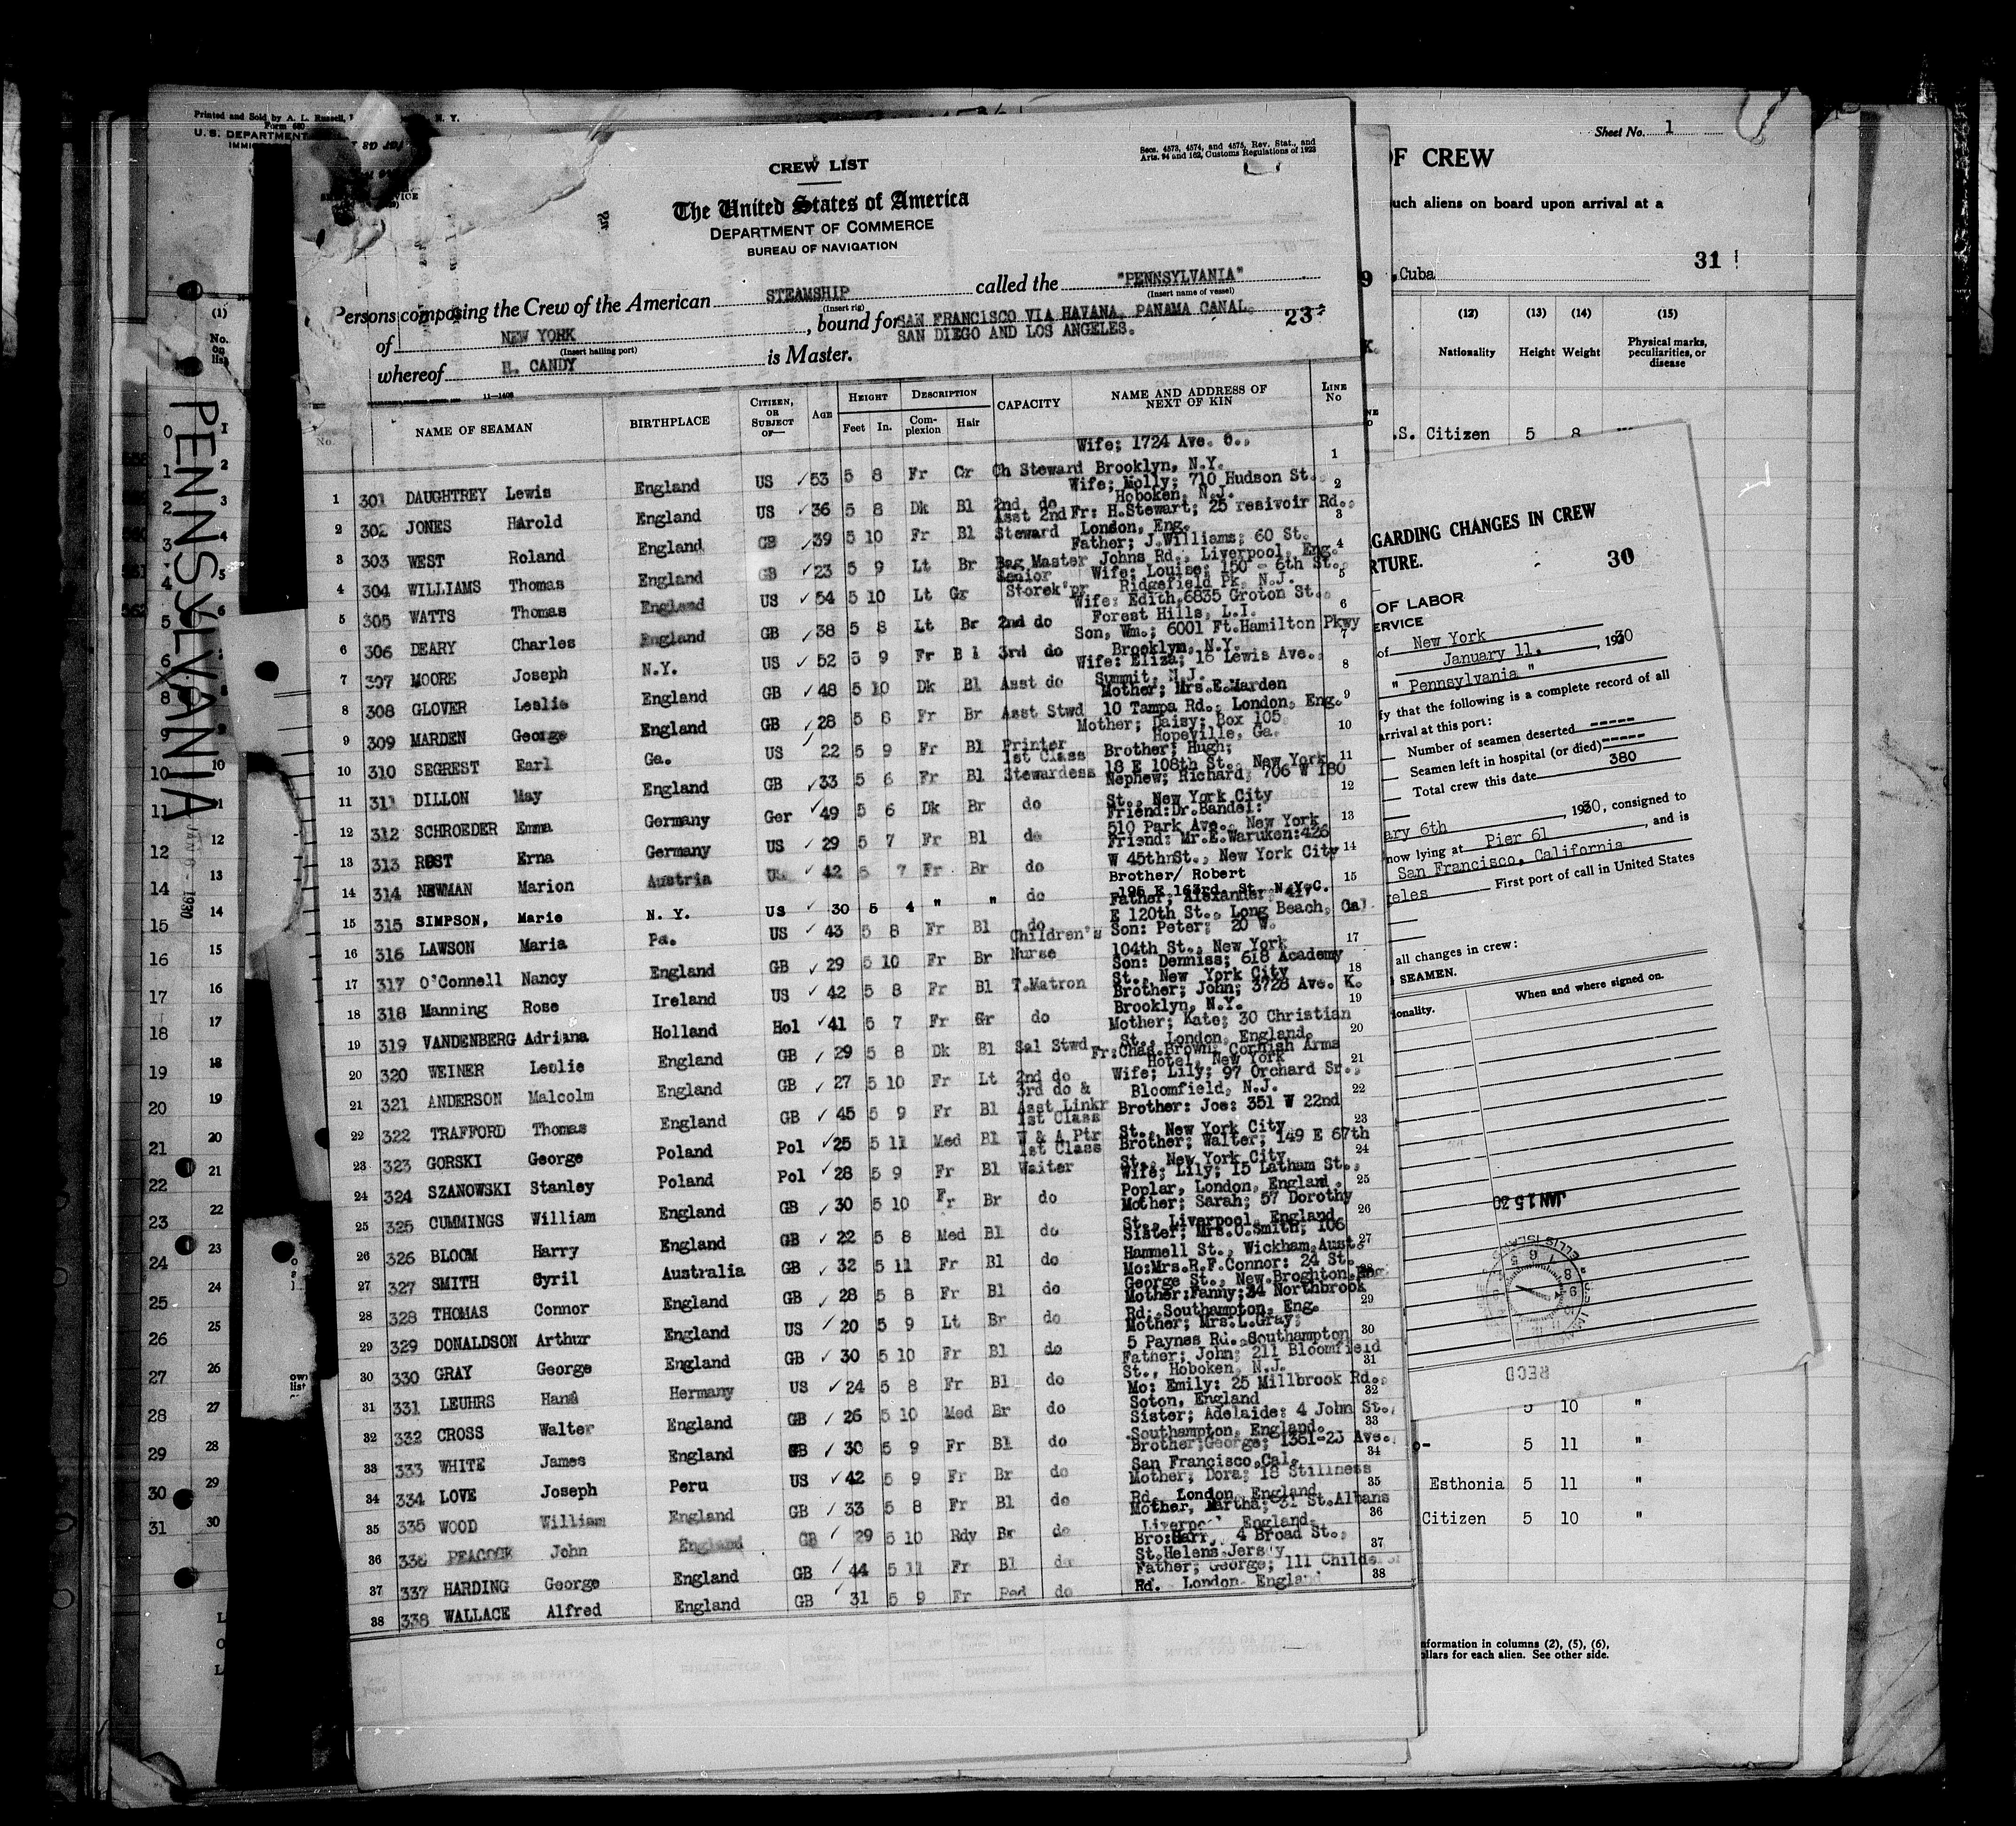 Printed and Sold by A. L. Russell,
N. Y.
Form 680
U. S. DEPARTMENT
Sheet No. 1
OF CREW
such aliens on board upon arrival at a
31
Cuba
(12) (13) (14) (15)
Nationality Height Weight Physical marks, peculiarities, or disease
.S. Citizen 5 8
PENNSYLVANIA
JAN 6 - 1930
CREW LIST
Secs. 4573, 4574, and 4575, Rev. Stat., and
Arts. 94 and 162, Customs Regulations of 1923
The United States of America
DEPARTMENT OF COMMERCE
BUREAU OF NAVIGATION
Persons composing the Crew of the American STEAMSHIP called the "PENNSYLVANIA"
(Insert rig) (Insert name of vessel)
of NEW YORK, bound for SAN FRANCISCO VIA HAVANA, PANAMA CANAL,
SAN DIEGO AND LOS ANGELES.
23
(Insert hailing port)
whereof H. CANDY is Master.
11-1408
No. NAME OF SEAMAN BIRTHPLACE CITIZEN, OR SUBJECT OF— AGE HEIGHT Feet In. DESCRIPTION Complexion Hair CAPACITY NAME AND ADDRESS OF NEXT OF KIN LINE No
Wife; 1724 Ave. O.,
1 301 DAUGHTREY Lewis England US 53 5 8 Fr Gr Ch Steward Brooklyn, N.Y. 1
Wife; Molly; 710 Hudson St.,
2 302 JONES Harold England US 36 5 8 Dk Bl 2nd do Hoboken, N.J. 2
Asst 2nd Fr: H.Stewart; 25 resivoir Rd.,
3 303 WEST Roland England GB 39 5 10 Fr Bl Steward London, Eng. 3
Father; J.Williams; 60 St.
4 304 WILLIAMS Thomas England GB 23 5 9 Lt Br Bag Master Johns Rd., Liverpool, Eng. 4
Senior Wife; Louise; 150 - 6th St.,
5 305 WATTS Thomas England US 54 5 10 Lt Gr Storek'pr Ridgefield Pk, N.J. 5
Wife: Edith, 6835 Groton St.,
6 306 DEARY Charles England GB 38 5 8 Lt Br 2nd do Forest Hills, L.I. 6
Son, Wm.; 6001 Ft.Hamilton Pkwy
7 307 MOORE Joseph N.Y. US 52 5 9 Fr Bl 3rd do Brooklyn, N.Y. 7
Wife: Eliza; 16 Lewis Ave.,
8 308 GLOVER Leslie England GB 48 5 10 Dk Bl Asst do Summit, N.J. 8
Mother; Mrs.E.Marden
9 309 MARDEN George England GB 28 5 8 Fr Br Asst Stwd 10 Tampa Rd., London, Eng. 9
Mother; Daisy; Box 105
10 310 SEGREST Earl Ga. US 22 5 9 Fr Bl Printer Hopeville, Ga. 10
1st Class Brother; Hugh;
11 311 DILLON May England GB 33 5 6 Fr Bl Stewardess 18 E 108th St., New York 11
Nephew; Richard; 706 W 180
12 312 SCHROEDER Emma Germany Ger 49 5 6 Dk Br do St., New York City 12
Friend:Dr.Bandel:
13 313 RUST Erna Germany US 29 5 7 Fr Bl do 510 Park Ave., New York 13
Friend: Mr.E.Waruken:426
14 314 NEWMAN Marion Austria US 42 5 7 Fr Br do W 45thnSt., New York City 14
Brother/ Robert
15 315 SIMPSON, Marie N. Y. US 30 5 4 " " do 195 E 163rd. St. N.Y.C. 15
Father; Alexander; 417
16 316 LAWSON Maria Pa. US 43 5 8 Fr Bl do E 120th St., Long Beach, Cal.
Children's Son: Peter; 20 W.
17 317 O'Connell Nancy England GB 29 5 10 Fr Br Nurse 104th St., New York 17
Son: Denniss; 618 Academy
18 318 Manning Rose Ireland US 42 5 8 Fr Bl T.Matron St., New York City 18
Brother; John; 3728 Ave. K.
19 319 VANDENBERG Adriana Holland Hol 41 5 7 Fr Gr do Brooklyn, N.Y. 19
Mother; Kate; 30 Christian
20 320 WEINER Leslie England GB 29 5 8 Dk Bl Sal Stwd St., London, England. 20
Fr:Chas.Brown; Cornish Arms
21 321 ANDERSON Malcolm England GB 27 5 10 Fr Lt 2nd do Hotel, New York 21
3rd do & Wife; Lily; 97 Orchard Sr.,
22 322 TRAFFORD Thomas England GB 45 5 9 Fr Bl Asst Linkr Bloomfield, N.J. 22
1st Class Brother: Joe: 351 W 22nd
23 323 GORSKI George Poland Pol 25 5 11 Med Bl W & A Ptr St., New York City 23
1st Class Brother; Walter; 149 E 67th
24 324 SZANOWSKI Stanley Poland Pol 28 5 9 Fr Bl Waiter St., New York City 24
Wife; Lily; 15 Latham St.,
25 325 CUMMINGS William England GB 30 5 10 Fr Br do Poplar, London, England. 25
Mother; Sarah; 57 Dorothy
26 326 BLOOM Harry England GB 22 5 8 Med Bl do St., Liverpool, England 26
Sister; Mrs.O.Smith; 106
27 327 SMITH Cyril Australia GB 32 5 11 Fr Bl do Hammell St., Wickham, Aust. 27
Mo:Mrs.R.F.Connor: 24 St.
28 328 THOMAS Connor England GB 28 5 8 Fr Bl do George St., New.Broghton.Eng. 28
Mother:Fanny;34 Northbrook
29 329 DONALDSON Arthur England US 20 5 9 Lt Br do Rd.,Southampton, Eng. 29
Mother; Mrs.L.Gray;
30 330 GRAY George England GB 30 5 10 Fr Bl do 5 Paynes Rd.,Southampton 30
Father; John; 211 Bloomfield
31 331 LEUHRS Hans Hermany US 24 5 8 Fr Bl do St., Hoboken, N.J. 31
Mo: Emily: 25 Millbrook Rd.,
32 332 CROSS Walter England GB 26 5 10 Med Br do Soton, England 32
Sister; Adelaide: 4 John St.,
33 333 WHITE James England GB 30 5 9 Fr Bl do Southampton, England. 33
Brother;George; 1361-23 Ave.,
34 334 LOVE Joseph Peru US 42 5 9 Fr Br do San Francisco,Cal. 34
Mother; Dora; 18 Stillness
35 335 WOOD William England GB 33 5 8 Fr Bl do Rd. London, England 35
Mother, Martha; 31 St.Albans
36 336 PEACOCK John England GB 29 5 10 Rdy Br do Liverpool England. 36
Bro:Harr, 4 Broad St.,
37 337 HARDING George England GB 44 5 11 Fr Bl do St.Helens Jersey 37
Father; George; 111 Childe
38 338 WALLACE Alfred England GB 31 5 9 Fr Red do Rd. London England 38
REGARDING CHANGES IN CREW
RTURE.
30
OF LABOR
SERVICE
of New York
January 11. , 1930
" Pennsylvania "
fy that the following is a complete record of all
arrival at this port:
Number of seamen deserted -----
Seamen left in hospital (or died) -----
Total crew this date 380
ary 6th , 1930, consigned to
now lying at Pier 61 , and is
San Francisco, California
eles First port of call in United States
all changes in crew:
SEAMEN.
ionality. When and where signed on.
JAN 15 30
ELLIS ISLAND
RECD
5 10 "
5 11 "
Esthonia 5 11 "
Citizen 5 10 "
information in columns (2), (5), (6),
ollars for each alien. See other side.